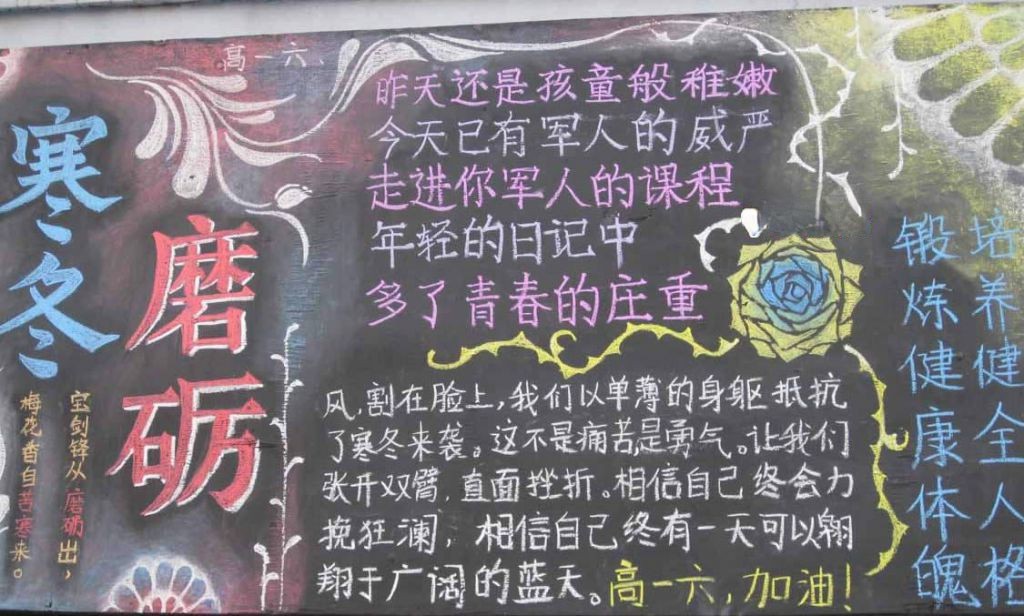 高一六
寒冬
磨砺
宝剑锋从磨砺出，
梅花香自苦寒来。
昨天还是孩童般稚嫩
今天已有军人的威严
走进你军人的课程
年轻的日记中
多了青春的庄重
风，割在脸上，我们以单薄的身躯抵抗
了寒冬来袭。这不是痛苦，是勇气。让我们
张开双臂，直面挫折。相信自己终会力
挽狂澜，相信自己终有一天可以翱
翔于广阔的蓝天。高一六，加油！
培养健全人格
锻炼健康体魄